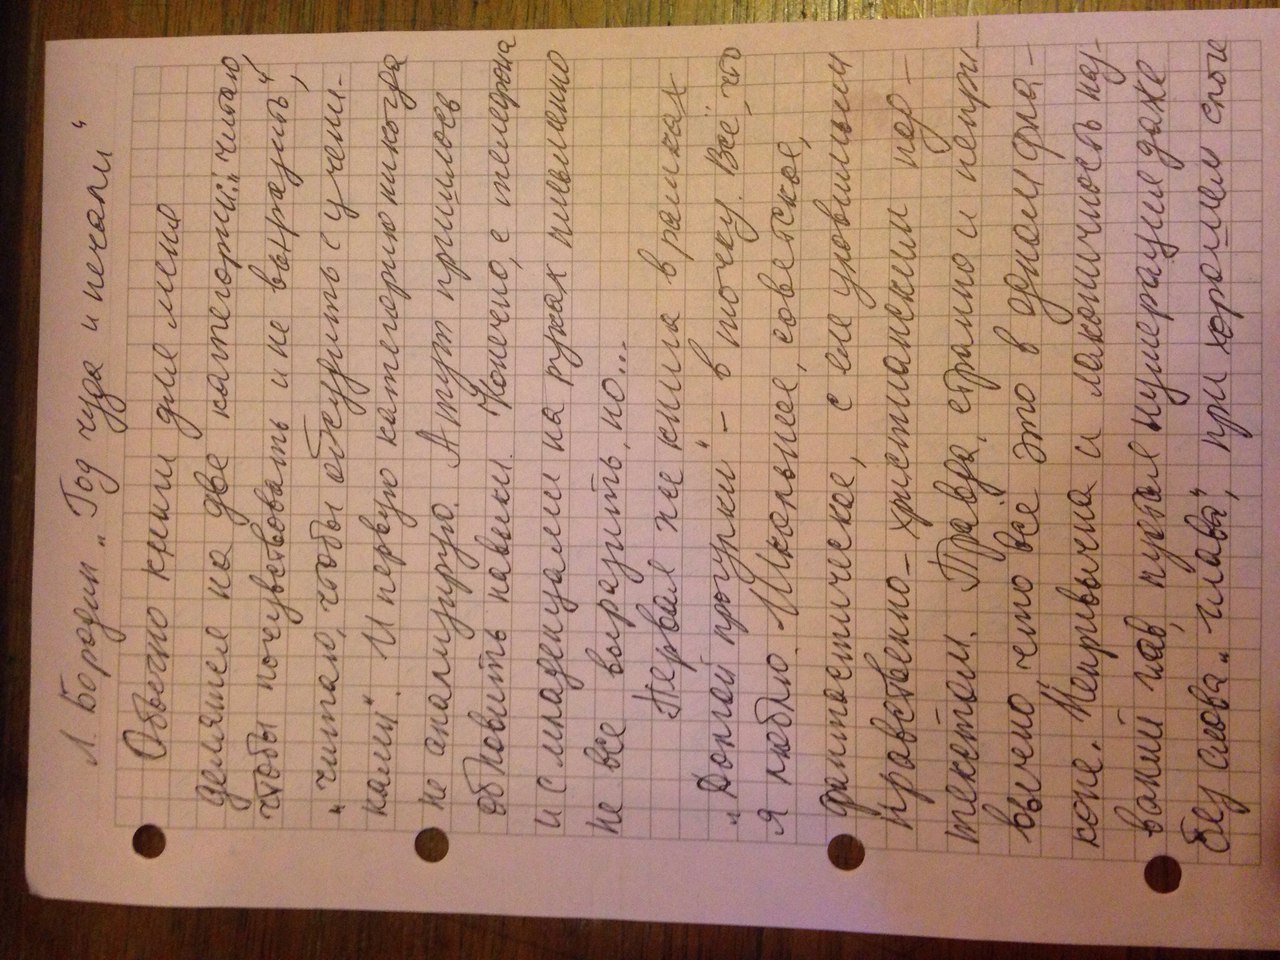 Л. Бородин „Год чуда и печали“
Обычно книги для меня
делятся на две категории: „читаю,
чтобы почувствовать и не выразить“,
„читаю, чтобы обсудить с учени-
ками“. И первую категорию никогда
не анализирую. А тут пришлось
обновить навыки. Конечно, с телефона
и с младенцами на руках письменно
не всё выразить, но...
Первая же книга в рамках
„Долгой прогулки“ – в точку. Всё, что
я люблю. Школьное, советское,
фантастическое, с еле уловимым
нравственно-христианским под-
текстом. Правда, странно и непри-
вычно что всё это в одном фла-
коне. Непривычна и лаконичность наз-
ваний глав, пустая нумерация даже
без слова „глава“, при хорошем слоге